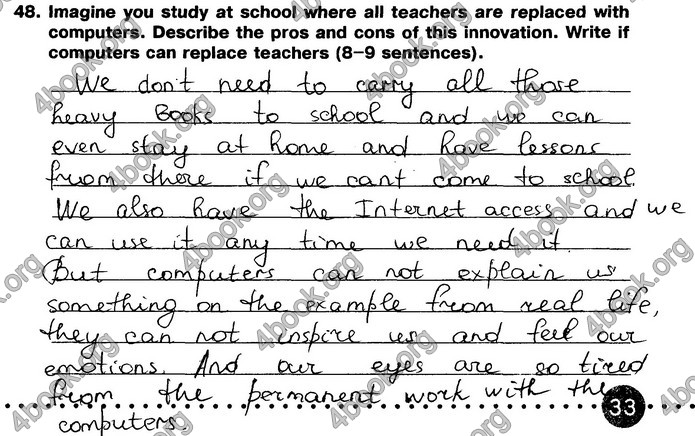 48. Imagine you study at school where all teachers are replaced with
computers. Describe the pros and cons of this innovation. Write if
computers can replace teachers (8–9 sentences).
We don't need to carry all those
heavy Books to school and we can
even stay at home and have lessons
from there if we cant come to school.
We also have the Internet access and we
can use it any time we need it.
But computers can not explain us
something on the example from real life,
they can not inspire us and feel our
emotions. And our eyes are so tired
from the permanent work with the
33
computers.
4book.org